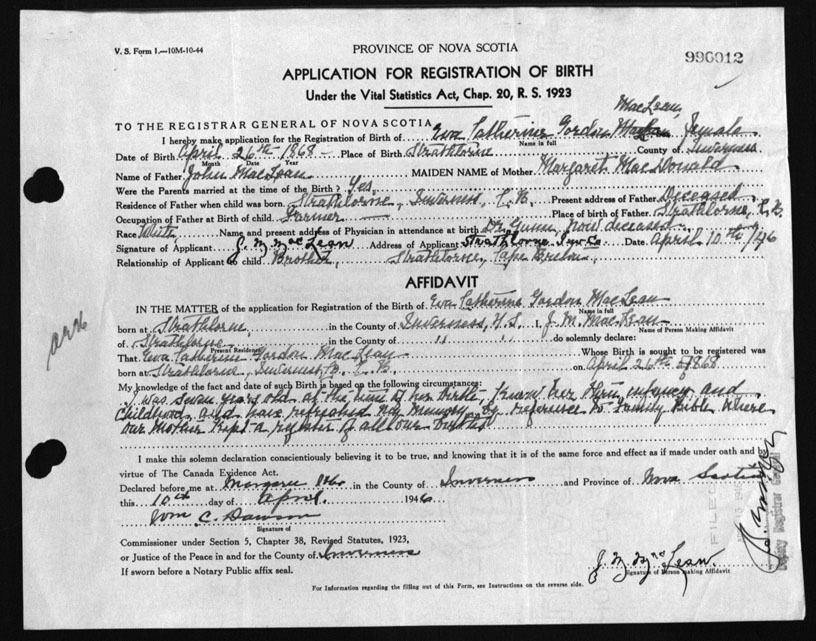 V. S. Form 1.—10M-10-44
PROVINCE OF NOVA SCOTIA
996012
APPLICATION FOR REGISTRATION OF BIRTH
Under the Vital Statistics Act, Chap. 20, R. S. 1923
MacLean,
TO THE REGISTRAR GENERAL OF NOVA SCOTIA
I hereby make application for the Registration of Birth of Eva Catherine Gordon Female
Name in full
Date of Birth April 26th 1868 Place of Birth Strathlorne County of Inverness
Month Date Year
Name of Father John MacLean MAIDEN NAME of Mother Margaret MacDonald
Were the Parents married at the time of the Birth? Yes,
Residence of Father when child was born Strathlorne, Inverness, C. B. Present address of Father Deceased
Occupation of Father at Birth of child. Farmer Place of birth of Father. Strathlorne, C. B.
Race White Name and present address of Physician in attendance at birth Dr Gunn, now deceased
Signature of Applicant J. M. MacLean Address of Applicant Strathlorne Inv. Co. Date April 10th /46
Relationship of Applicant to child Brother, Strathlorne, Cape Breton
AFFIDAVIT
IN THE MATTER of the application for Registration of the Birth of Eva Catherine Gordon MacLean
Name in full
born at Strathlorne, in the County of Inverness, N. S. I, J. M. MacLean
Name of Person Making Affidavit
of Strathlorne in the County of " " do solemnly declare:
Present Residence
That Eva Catherine Gordon MacLean Whose Birth is sought to be registered was
born at Strathlorne, Inverness C. B. on April 26th 1868
My knowledge of the fact and date of such Birth is based on the following circumstances:
I was seven years old at the time of her birth, I knew her thru infancy and
childhood and have refreshed my memory by reference to Family Bible where
our Mother kept a register of all our births
I make this solemn declaration conscientiously believing it to be true, and knowing that it is of the same force and effect as if made under oath and by
virtue of The Canada Evidence Act.
Declared before me at Margaree in the County of Inverness and Province of Nova Scotia
this 10th day of April 1946
Wm C. Dawson
Signature of
Commissioner under Section 5, Chapter 38, Revised Statutes, 1923,
or Justice of the Peace in and for the County of Inverness
If sworn before a Notary Public affix seal.
J. M. McLean
Signature of Person Making Affidavit
For Information regarding the filling out of this Form, see Instructions on the reverse side.
Deputy Registrar General
FILED